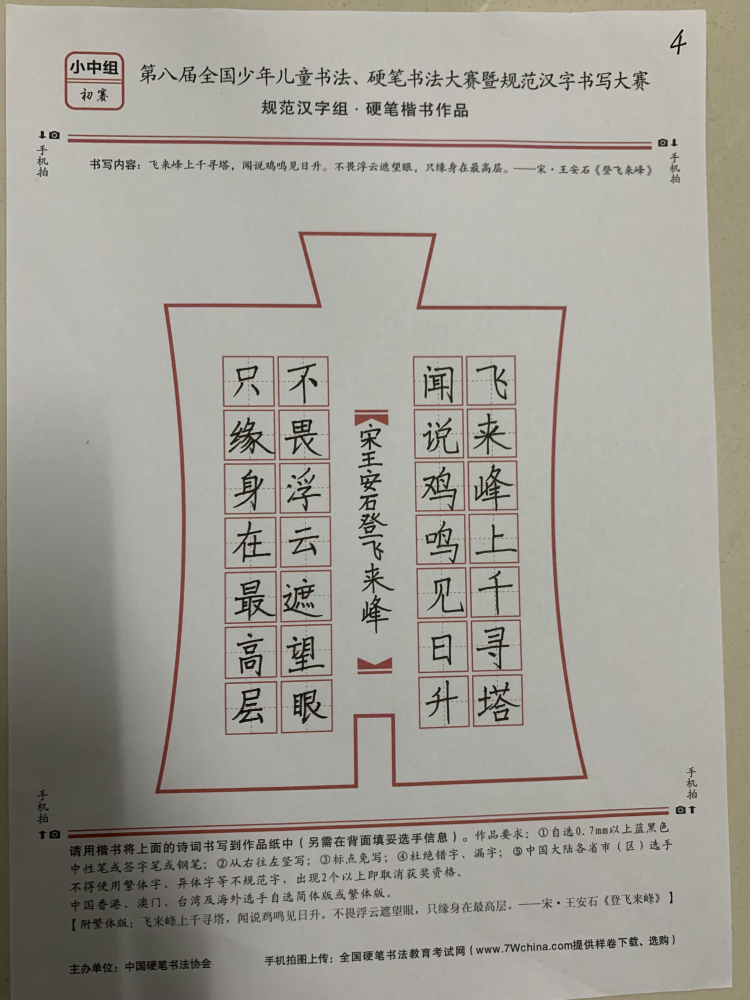 4
小中组
初赛
第八届全国少年儿童书法、硬笔书法大赛暨规范汉字书写大赛
规范汉字组·硬笔楷书作品
手机拍
手机拍
书写内容：飞来峰上千寻塔，闻说鸡鸣见日升。不畏浮云遮望眼，只缘身在最高层。——宋·王安石《登飞来峰》
飞来峰上千寻塔
闻说鸡鸣见日升
宋王安石登飞来峰
不畏浮云遮望眼
只缘身在最高层
手机拍
手机拍
请用楷书将上面的诗词书写到作品纸中（另需在背面填妥选手信息）。作品要求：①自选0.7mm以上蓝黑色
中性笔或签字笔或钢笔；②从右往左竖写；③标点免写；④杜绝错字、漏字；⑤中国大陆各省市（区）选手
不得使用繁体字、异体字等不规范字，出现2个以上即取消获奖资格。
中国香港、澳门、台湾及海外选手自选简体版或繁体版。
【附繁体版：飞来峰上千寻塔，闻说鸡鸣见日升。不畏浮云遮望眼，只缘身在最高层。——宋·王安石《登飞来峰》】
主办单位：中国硬笔书法协会
手机拍图上传：全国硬笔书法教育考试网（www.7Wchina.com提供样卷下载、选购）